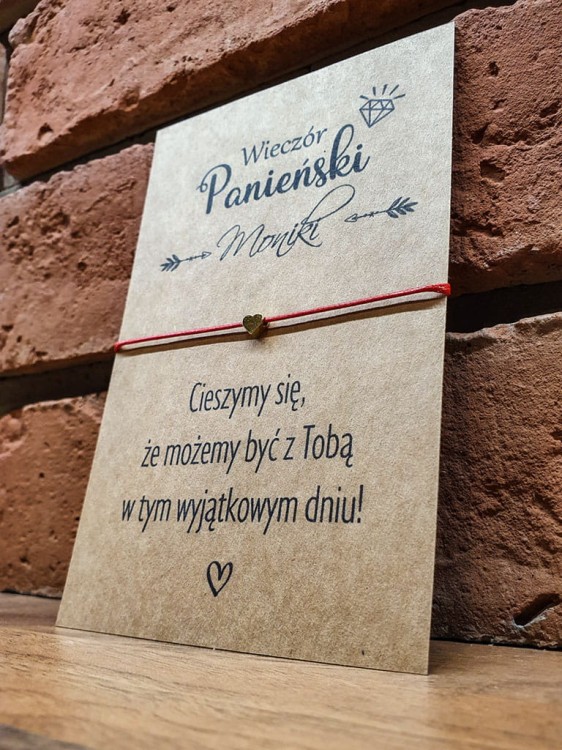 Wieczór
Panieński
Moniki
Cieszymy się,
że możemy być z Tobą
w tym wyjątkowym dniu!